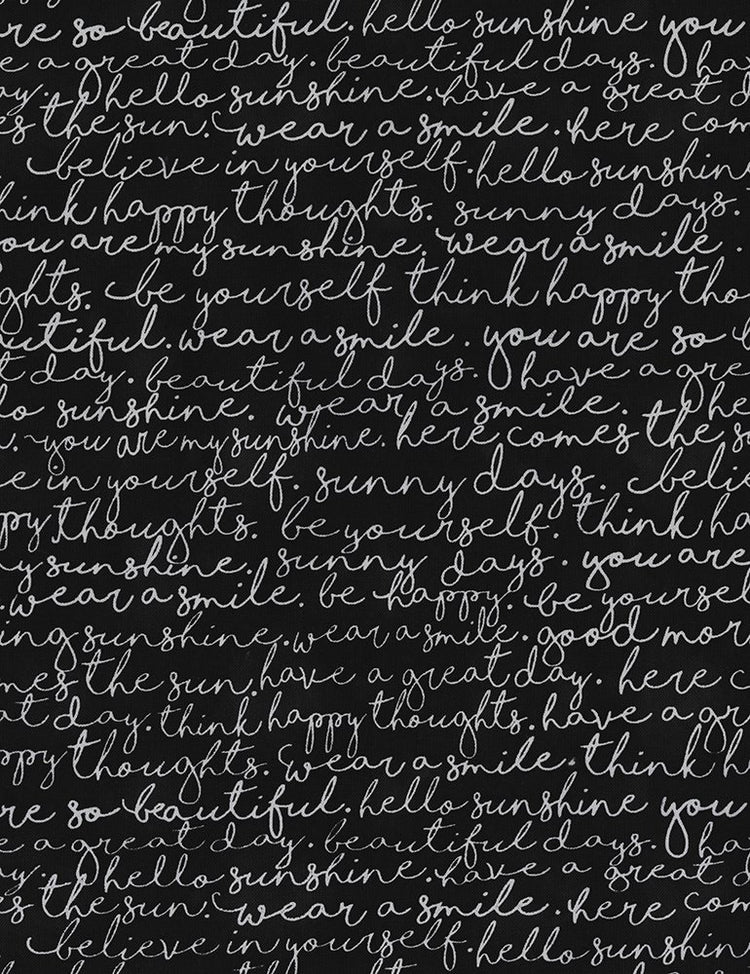 re so beautiful. hello sunshine you
e a great day. beautiful days. ha
ay. hello sunshine. have a great d
es the sun. wear a smile. here com
believe in yourself. hello sunshin
hink happy thoughts. sunny days.
ou are my sunshine. wear a smile.
ghts. be yourself think happy tho
autiful. wear a smile. you are so b
t day. beautiful days. have a gre
lo sunshine. wear a smile. he
. you are my sunshine. here comes the s
e in yourself. sunny days. beli
py thoughts. be yourself. think ha
y sunshine. sunny days. you are
. wear a smile. be happy. be yoursel
ing sunshine. wear a smile. good mor
mes the sun. have a great day. here c
at day. think happy thoughts. have a gr
ppy thoughts. wear a smile. think h
re so beautiful. hello sunshine you
e a great day. beautiful days. ha
ay. hello sunshine. have a great d
es the sun. wear a smile. here com
believe in yourself. hello sunshin